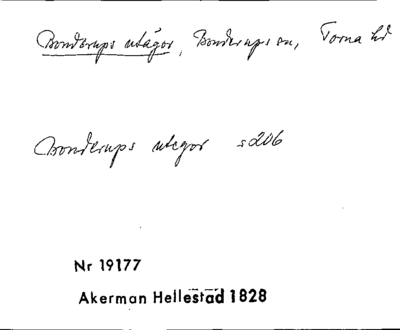 Bonderups utägor, Bonderups sn, Torna hd
Bonderups utegor s 206
Nr 19177
Akerman Hellestad 1828